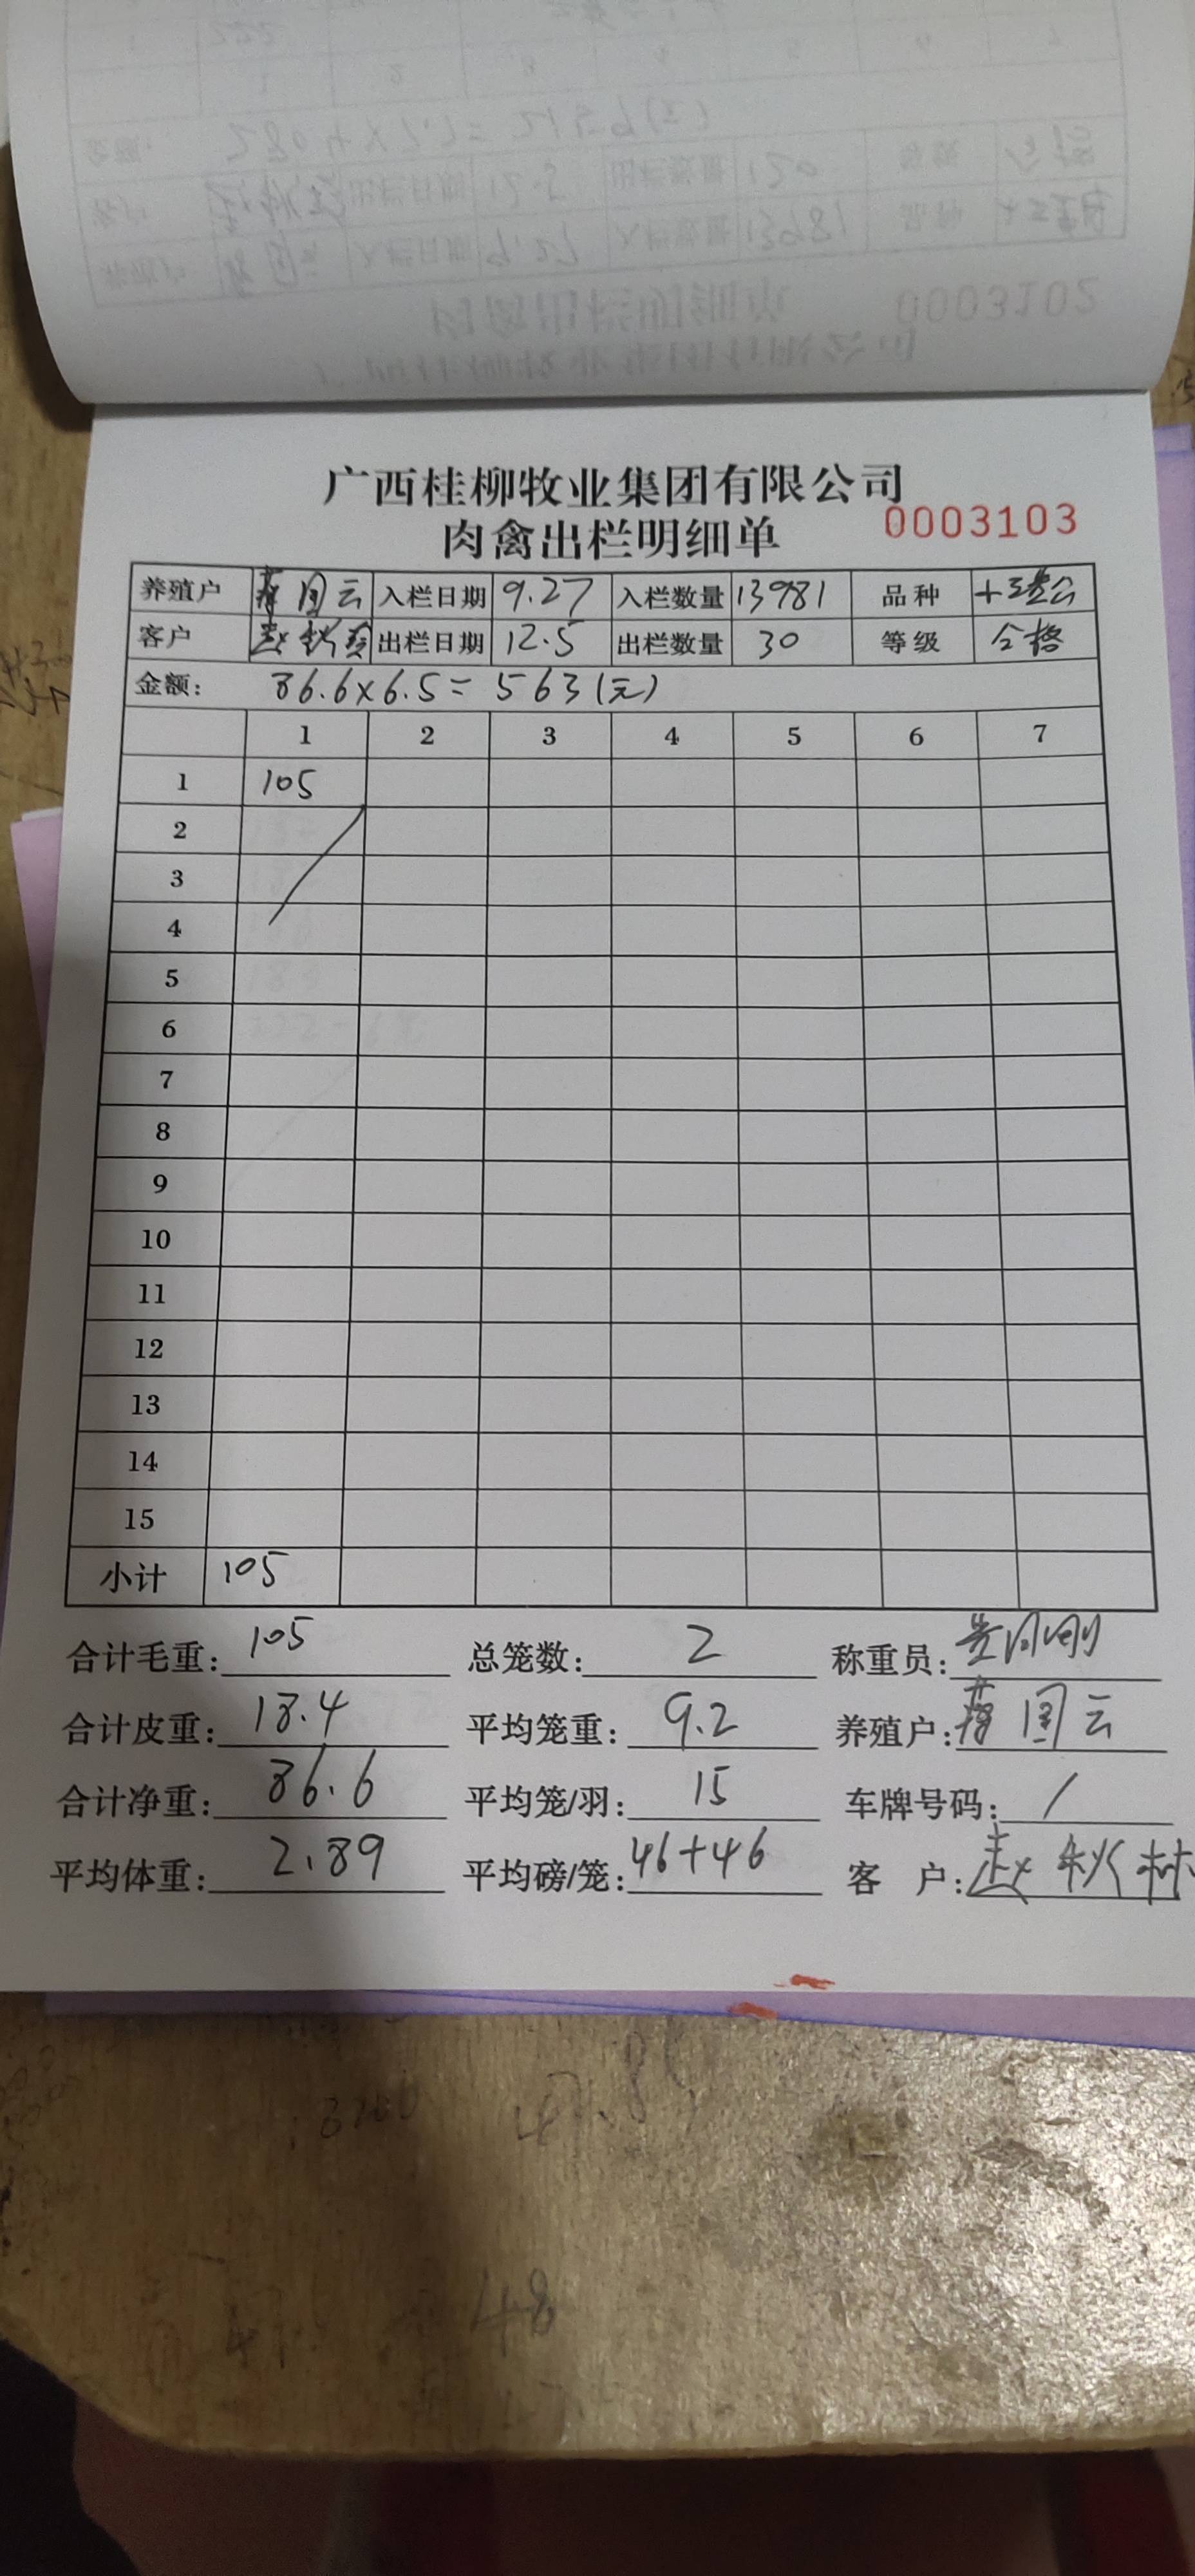 广西桂柳牧业集团有限公司
肉禽出栏明细单 0003103
养殖户 国云 入栏日期 9.27 入栏数量 13981 品种
客户 赵 出栏日期 12.5 出栏数量 30 等级 合格
金额: 86.6×6.5=563(元)
1 2 3 4 5 6 7
1 105
2
3
4
5
6
7
8
9
10
11
12
13
14
15
小计 105
合计毛重: 105 总笼数: 2 称重员:
合计皮重: 18.4 平均笼重: 9.2 养殖户: 国云
合计净重: 86.6 平均笼/羽: 15 车牌号码: /
平均体重: 2.89 平均磅/笼: 46+46 客 户: 赵秋林